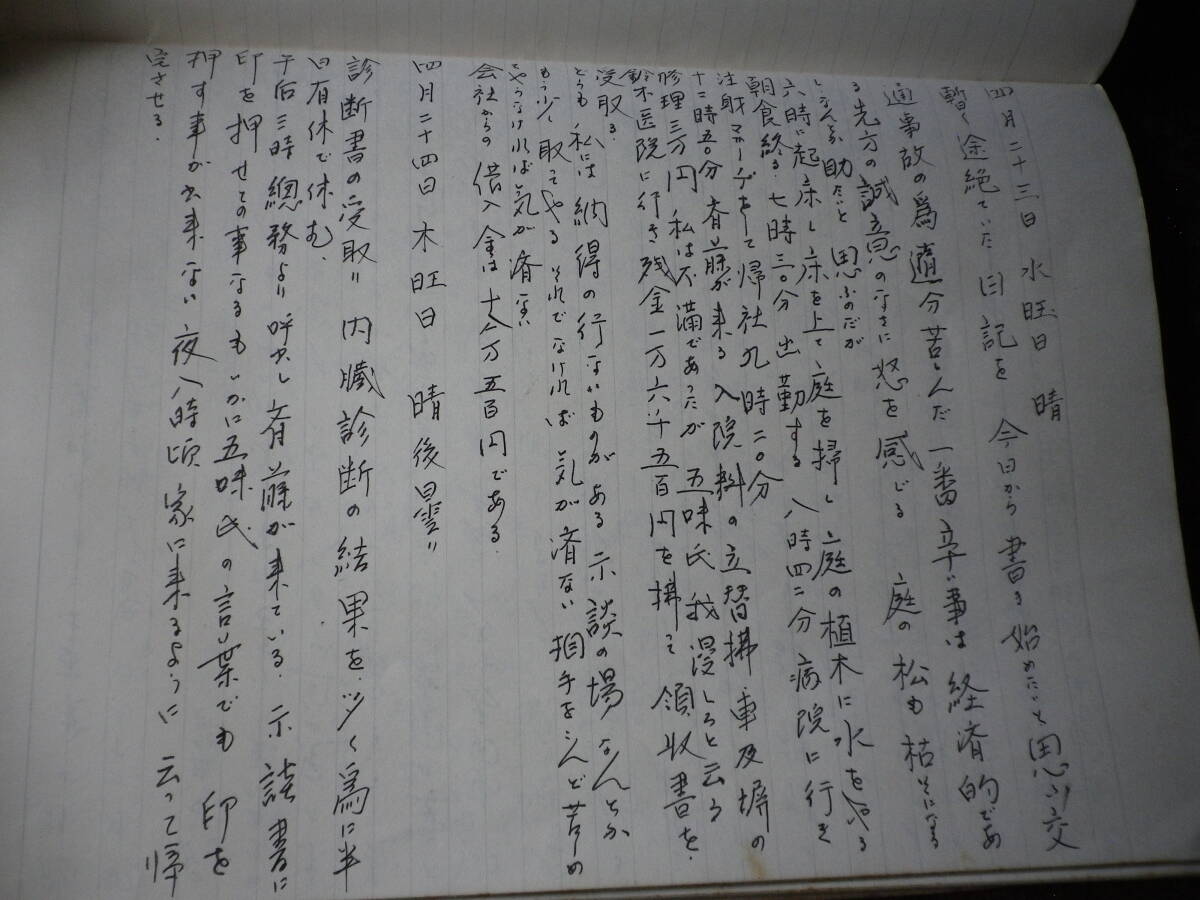 四月二十三日 水旺日 晴
暫く途絶ていた日記を 今日から書き始めたいと思ふ 交
通事故の爲随分苦しんだ 一番辛い事は経済的であ
る 先方の誠意のなさに怒を感じる 庭の松も枯そになる
なんとか助たいと思ふのだが
六時に起床し床を上て庭を掃し庭の植木に水をやる
朝食終る 七時三〇分出勤する 八時四二分病院に行き
注射マッサージをして帰社九時二〇分
十二時五〇分斉藤が来る 入院料の立替拂車及塀の
修理三万円 私は不満であったが五味氏我漫しろと云る
鈴木医院に行き残金一万六千五百円を拂って領収書を
受取る.
とも私には納得の行ないものがある 示談の場なんとか
もう少し取ってやる それでなければ気が済ない 相手をうんと苦しめ
てやらなければ気が済ない
会社からの借入金は 万五百円である.
四月二十四日 木旺日 晴後曇り
診断書の受取り 内臓診断の結果を 爲に半
日有休で休む.
午后三時總務より呼出し斉藤が来ている. 示談書に
印を押せとの事なるもいかに五味氏の言葉でも 印を
押す事が出来ない 夜八時頃家に来るように云って帰
宅させる.